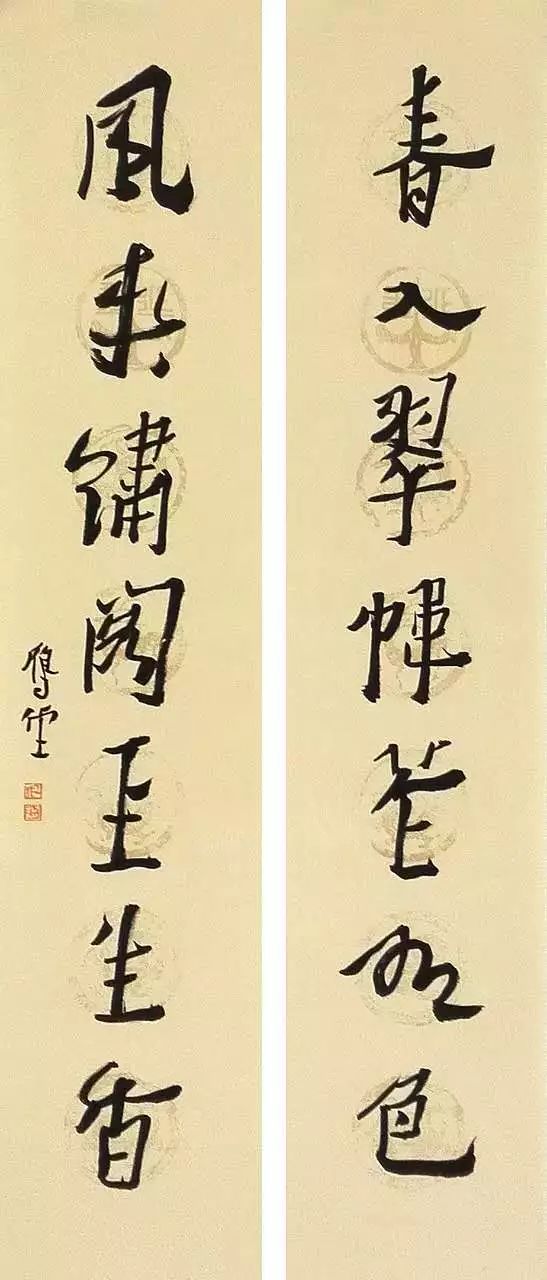 春入翠幃花有色
風來繡閣玉生香